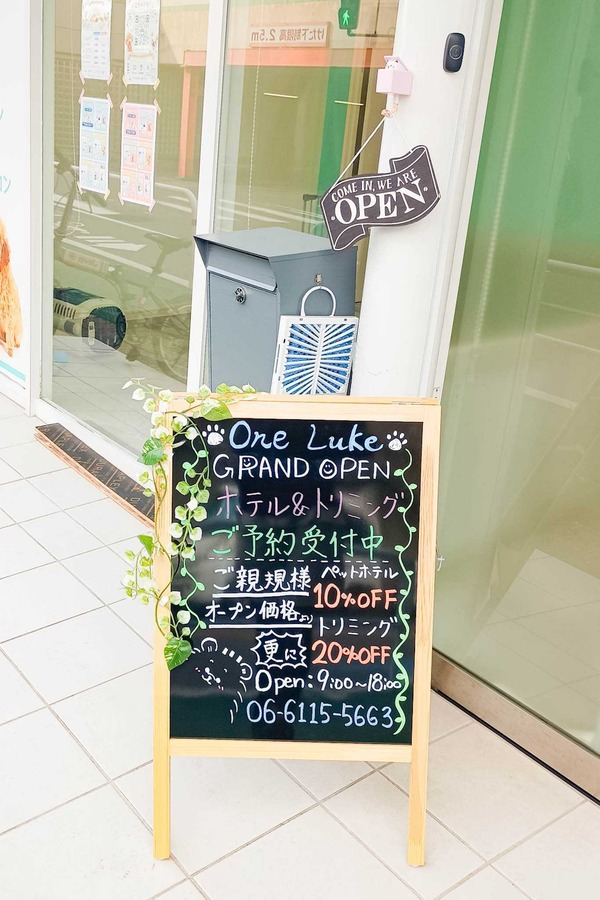 けた下制限高 2.5m
COME IN, WE ARE
OPEN
One Luke
GRAND OPEN
ホテル&トリミング
ご予約受付中
ご親規様
オープン価格より
更に
ペットホテル
10%OFF
トリミング
20%OFF
Open: 9:00~18:00
06-6115-5663